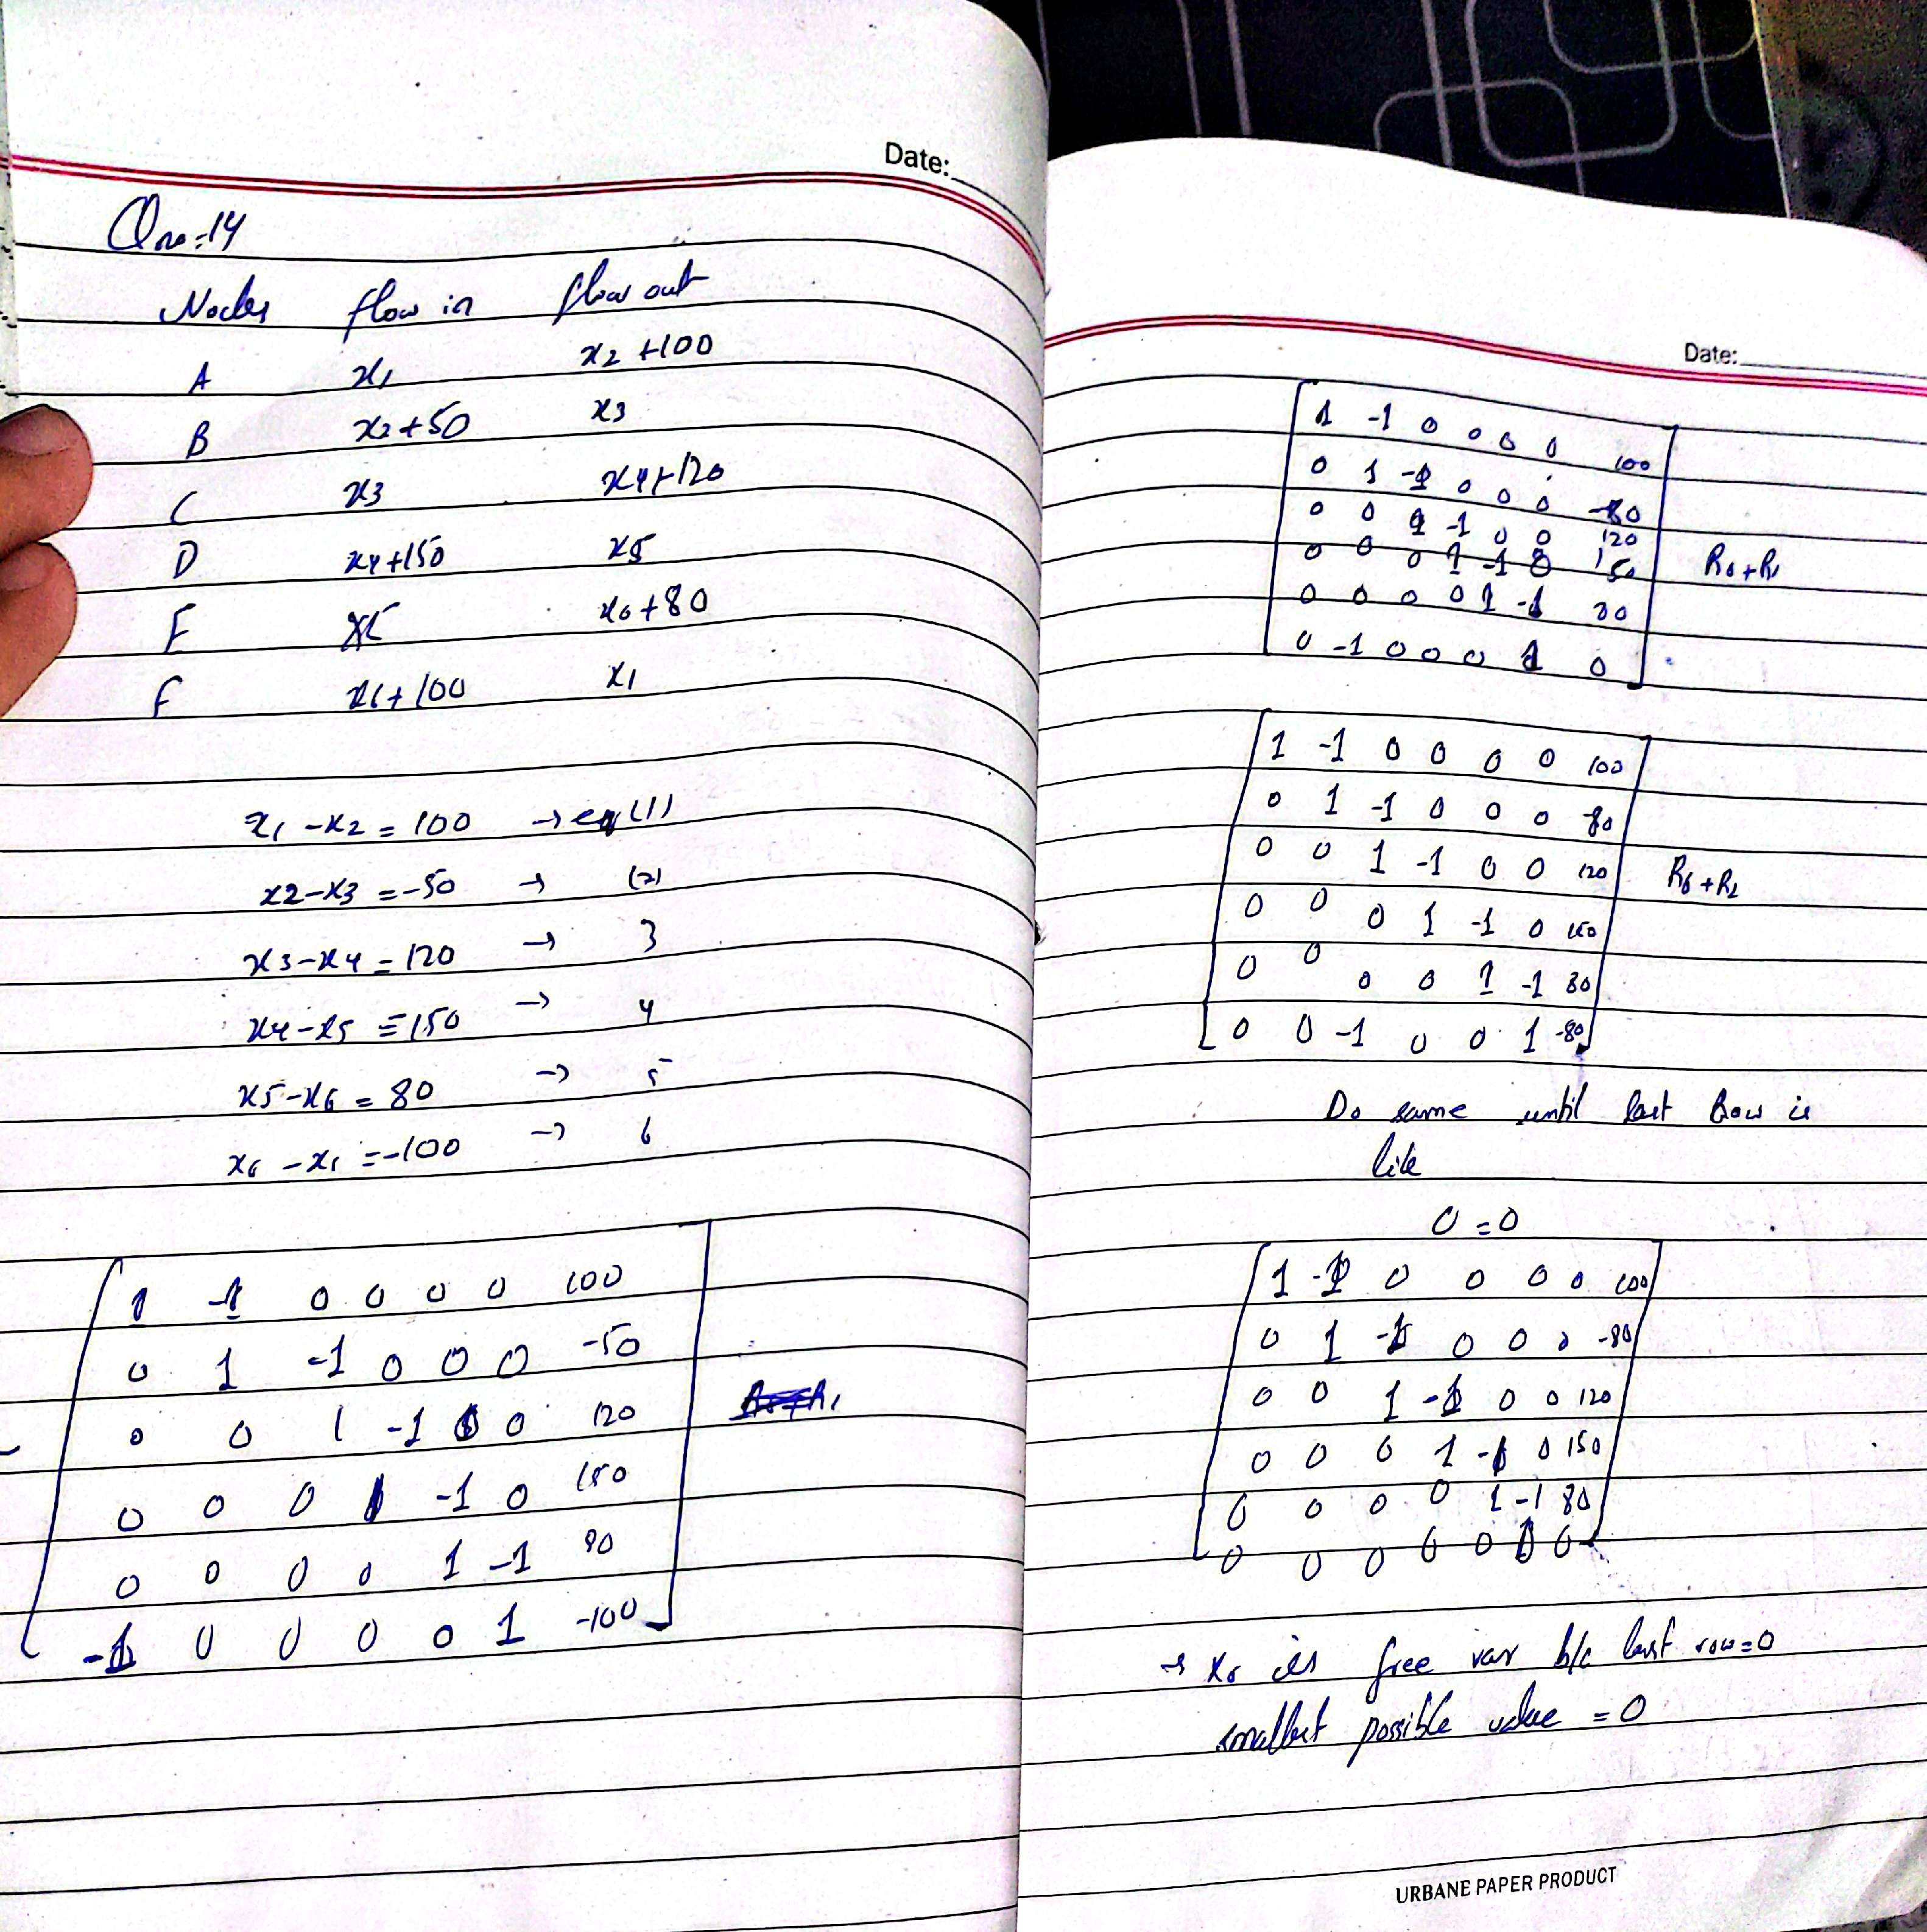 Date:
Qno=14
Nodes flow in flow out
A x1 x2 +100
B x2+50 x3
C x3 x4+120
D x4+150 x5
E x5 x6+80
F x6+100 x1
x1 -x2 = 100 → eq (1)
x2-x3 = -50 → (2)
x3-x4 = 120 → 3
x4-x5 = 150 → 4
x5-x6 = 80 → 5
x6 -x1 = -100 → 6
1 -1 0 0 0 0 100
0 1 -1 0 0 0 -50
0 0 1 -1 0 0 120
0 0 0 1 -1 0 150
0 0 0 0 1 -1 80
-1 0 0 0 0 1 -100
Date:
1 -1 0 0 0 0 100
0 1 -1 0 0 0 -80
0 0 1 -1 0 0 120
0 0 0 1 -1 0 150 R6+R1
0 0 0 0 1 -1 80
0 -1 0 0 0 1 0
1 -1 0 0 0 0 100
0 1 -1 0 0 0 -80
0 0 1 -1 0 0 120 R6+R2
0 0 0 1 -1 0 150
0 0 0 0 1 -1 80
0 0 -1 0 0 1 -80
Do same until last Row is
like
0 = 0
1 -1 0 0 0 0 100
0 1 -1 0 0 0 -80
0 0 1 -1 0 0 120
0 0 0 1 -1 0 150
0 0 0 0 1 -1 80
0 0 0 0 0 0 0
→ x6 is free var b/c last row=0
smallest possible value = 0
URBANE PAPER PRODUCT